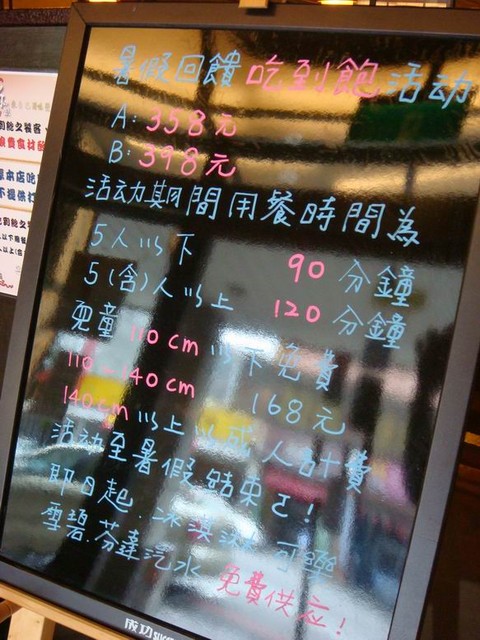 暑假回饋吃到飽活动
A: 358元
B: 398元
活动期間用餐時間為
5人以下 90 分鐘
5(含)人以上 120 分鐘
兒童110cm以下免費
110~140cm 168元
140cm以上以成人計費
活动至暑假結束止!
即日起.冰淇淋.可樂
雪碧.芬達汽水 免費供应!
成功